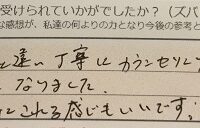 受けられていかがでしたか？（ズバ
な感想が、私達の何よりの力となり今後の参考と
と違い丁寧にカウンセリング
なりました。
にこれる感じもいいです。